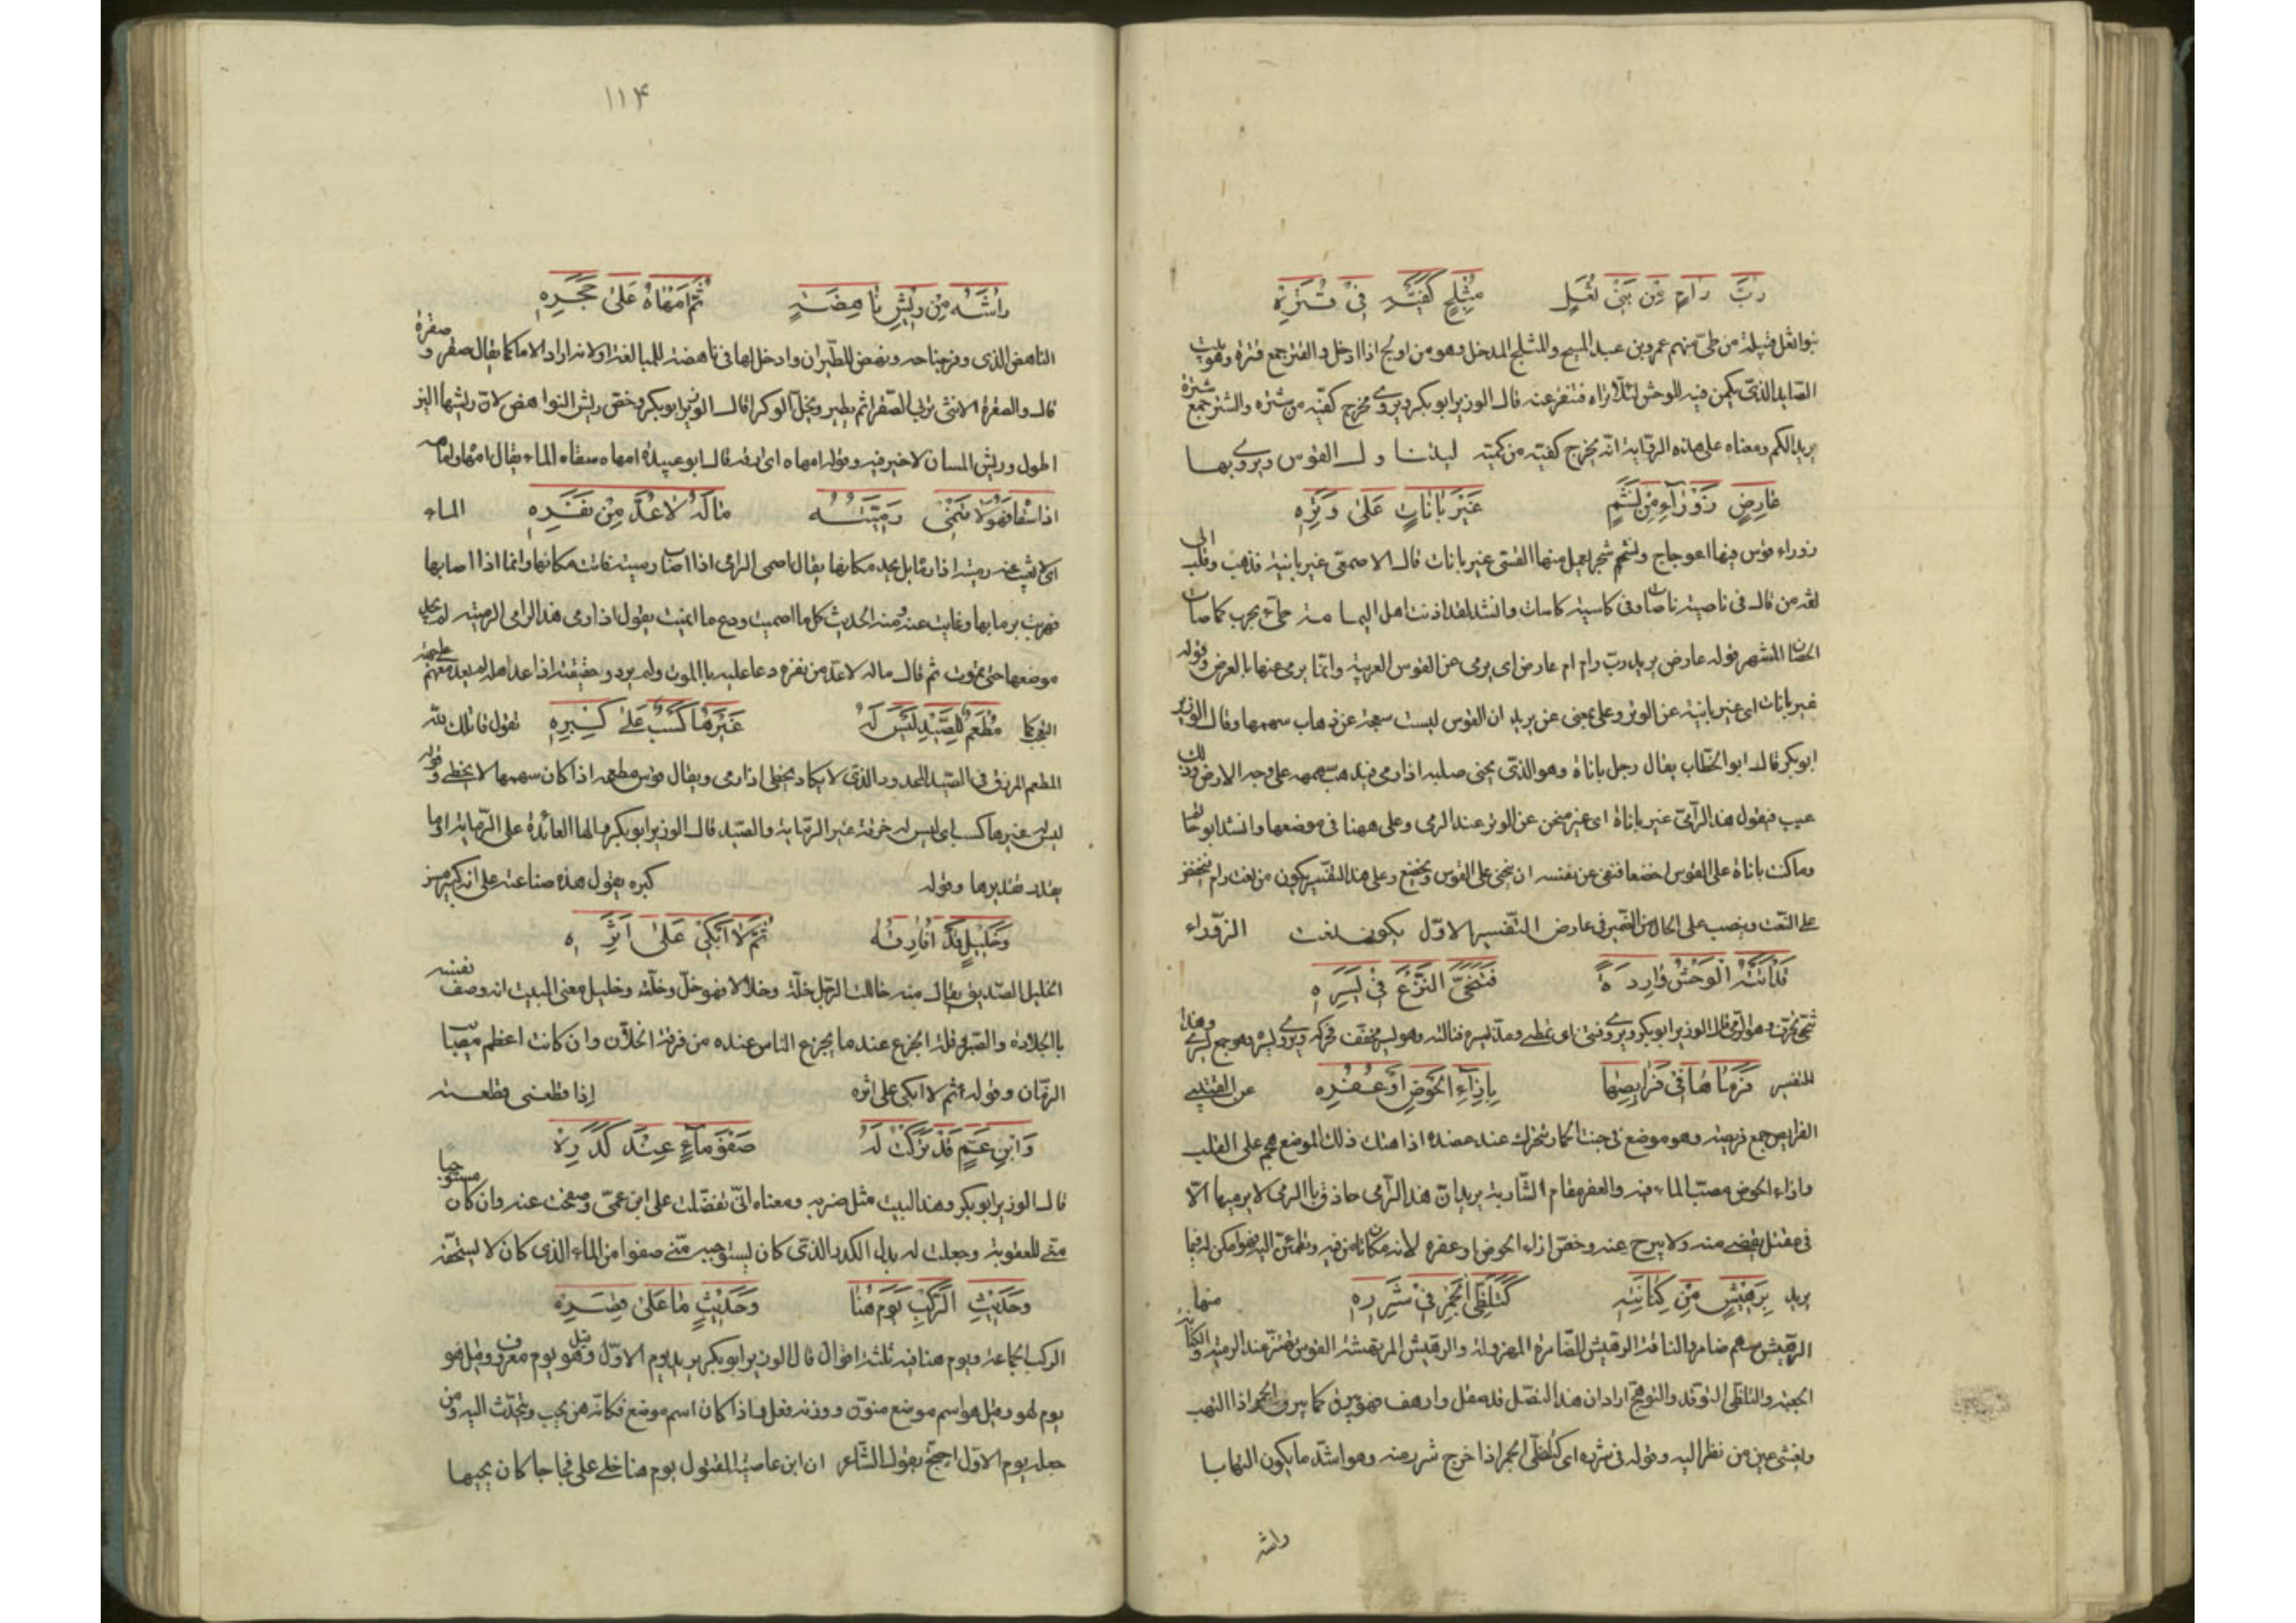 رُبَّ رَامٍ مِن بَنِي ثُعَلٍ مُثْلِجٍ كَفَّيْهِ فِي قُتَرِهْ
بنو اثعل قبيلة من طىّ منهم عمرو بن عبد المسيح والمثلج المدخل وهو من اولج اذا ادخل والقتر جمع قترة وهو بيت
الصايد الذى يكمن فيه للوحش لئلا تراه فتنفر عنه قال الوزير ابو بكر ويروى مخرج كفّيه من شتره والشتر جمع شترة
يريد الكم ومعناه على هذه الرواية انّه يخرج كفيّه من كميّه القوس ويروى بها
عَارِضٍ زَوْرَآءِ مِنْ نَشَمٍ غَيْرَ بَانَاتٍ عَلَى وَتَرِهِ
زوراء قوس فيها اعوجاج ونشم شجر يعمل منها القسى غير بانات قال الاصمعى غير بانية فذهب وقلب الى
لغة من قال فى ناصية ناصاة وفى كاسية كاسات وانشد لقد اذنت اهل اليما مة طىّ بحرب كناصات
الحصان المشهر قوله عارض يريد ربّ رام عارض اى يرمى عن القوس العربية وانّما يرمى عنها بالعرض وقوله
غير بانات اى غير بانية عن الوتر وعلى بمعنى عن يريد ان القوس ليست عن ذهاب سهمها وقال الوزير
ابو بكر قال ابو الخطاب يقال رجل باناة وهو الذى يحنى صلبه اذا رمى فيذهب سهمه على وجه الارض وذلك
عيب فيقول هذا الرآمى غير باناة اى غير منحن عن الوتر عند الرمى وعلى ههنا فى موضعها وانشد ابو
وما كنت باناة على القوس اخضعا فنفى عن نفسه ان ينحنى على القوس ويخضع وعلى هذا التفسير يكون من نعت رام
على النعت وينصب على الحال من الضمير فى عارض التفسير الاوّل يكون نعت الزوراء
قَدْ أَتَتْهُ الْوَحْشُ وَارِدَةً فَتَنَحَّى النَّزْعَ فِي يَسَرِهِ
تنحّى تحرّف وهو الرّمى قال الوزير ابو بكر ويروى فتمتى اى تمطّى ومدّ يسره قبالته وهو يسر مخفف فحركه ويروى يسره وهو جمع يسرى وهذا
التفسير فَرَمَاهَا فِي فَرَايِصِهَا بِإِزَآءِ الْحَوْضِ أَوْ عُقُرِهْ عن القتيبى
الفرايص جمع فريصة وهو موضع فى جنب الحمار تتحرك عند عضده اذا هتك ذلك الموضع هجم على القلب
وازاء الحوض مصبّ الماء فيه والعقر مقام الشّاربة يريد انّ هذا الرآمى حاذق بالرمى لا يرميها الّا
فى مقتل منه ولا يبرح عنه وخصّ ازاء الحوض وعقره لانه مكان تامن فيه وتطمئن اليه فهو امكن له فيما
يريد بِرَهِيشٍ مِّنْ كِنَانَتِهِ كَتَلَظِّي الْجَمْرِ فِي شَرَرِهِ منها
الرّهيش سهم ضامر والناقة الرهيش الضّامرة المهزولة والرهيش المرتهشة القوس تهتزّ عند الرمية والكنانة
الجعبة والتلظّى التوقد والتوهّج اراد ان هذا النصّل قد صقل وارهف فهو يبرق كما يبرق الجمر اذا التهب
ويغشى عين من نظر اليه وقوله فى شرره اى كتلظّى الجمر اذا خرج شرر منه وهو اشدّ ما يكون التهابا
راشه
١١٤
رَاشَهُ مِنْ رِيشِ نَاهِضَةٍ ثُمَّ أَمْهَاهُ عَلَى حَجَرِهِ
الناهض الذى وفر جناحه ونهض للطّيران وادخل الهاء فى ناهضة للمبالغة او لانه اراد الام كما يقال صقر وصقرة
قال والصقرة الانثى ثم يطير ويخلّ الوكر قال الوزير ابو بكر وخصّ ريش النواهض لانّ ريشها الين
اطول وريش المسان لا خير فيه وقوله امهاه اى ارقه قال ابو عبيدة امهاه سقاه الماء يقال امهاه
اذا سقاه فَهُوَ لَا تَنْمِي رَمِيَّتُهُ مَالَهُ لَا عُدَّ مِنْ نَفَرِهِ الماء
اى لا تغيب عنه رميته اذا رماها بل يجد مكانها يقال اصمى الرامى اذا اصاب رميته فماتت مكانها وانما اذا اصابها
فهربت برمايها وغابت عنه ومنه الحديث كل ما اصميت ودع ما انميت يقول اذا رمى هذا الرامى الرمية لم
موضعها حتى تموت ثم قال ماله لا عدّ من نفره دعا عليه بالموت ولم يرد وحقيقة اذا عدّ اهله لم يعد معهم
مُطْعَمٌ لِلصَّيْدِ لَيْسَ لَهُ غَيْرَهَا كَسْبٌ عَلَى كِبَرِهِ تقول قاتلك الله
المطعم المرزوق فى الصّيد المجدود الذى لا يكاد يخطى اذا رمى ويقال قوس مطعم اذا كان سهمها لا يخطى وقوله
ليس له غيرها كسب اى ليس له حرفة غير الرّماية والصّيد قال الوزير ابو بكر والها العائدة على الرّماية او ما
يقدّر تقديرها وقوله كبره يقول هذه صناعته على انه كبير
وَخَلِيلٍ قَدْ أُفَارِقُهُ ثُمَّ لَا أَبْكِي عَلَى أَثَرِهِ
الخليل الصّديق يقال منه خاللت الرّجل خلّة وخلالا فهو خلّ وخلّة وخليل معنى البيت انه وصف نفسه
بالجلادة والصّبر وقلّة الجزع عندما يجزع الناس عنده من فرقة الخلاّن وان كانت اعظم مصيبات
الزمّان وقوله ثم لا ابكى على اثره اذا قطعنى قطعته
وَابْنِ عَمٍّ قَدْ تَرَكْتُ لَهُ صَفْوَ مَآءٍ عِنْدَ كَدَرِهْ
قال الوزير ابو بكر وهذا البيت مثل ضربه ومعناه انّى تفضّلت على ابن عمّى وصفحت عنه وان كان مستوجبا
منّى للعقوبة وجعلت له بدل الكدر الذى كان يستوجبه منّى صفوا من الماء الذى كان لا يستحقّه
وَحَدِيثِ الرَّكْبِ يَوْمَ هُنَا وَحَدِيثٍ مَا عَلَى قِصَرِهِ
الركب الجماعة ويوم هنا فيه ثلثة اقوال قال الوزير ابو بكر يريد يوم الاوّل وقيل هو يوم معروف وقيل هو
يوم لهو وقيل هو اسم موضع منوّن ووزنه فعل فاذا كان اسم موضع فكانّه من يحبّ ويتحدّث اليه ومن
جعله يوم الاوّل احتجّ بقول الشّاعر ان ابن عاصية المقتول يوم هنا خلى على فجاجا كان يحميها